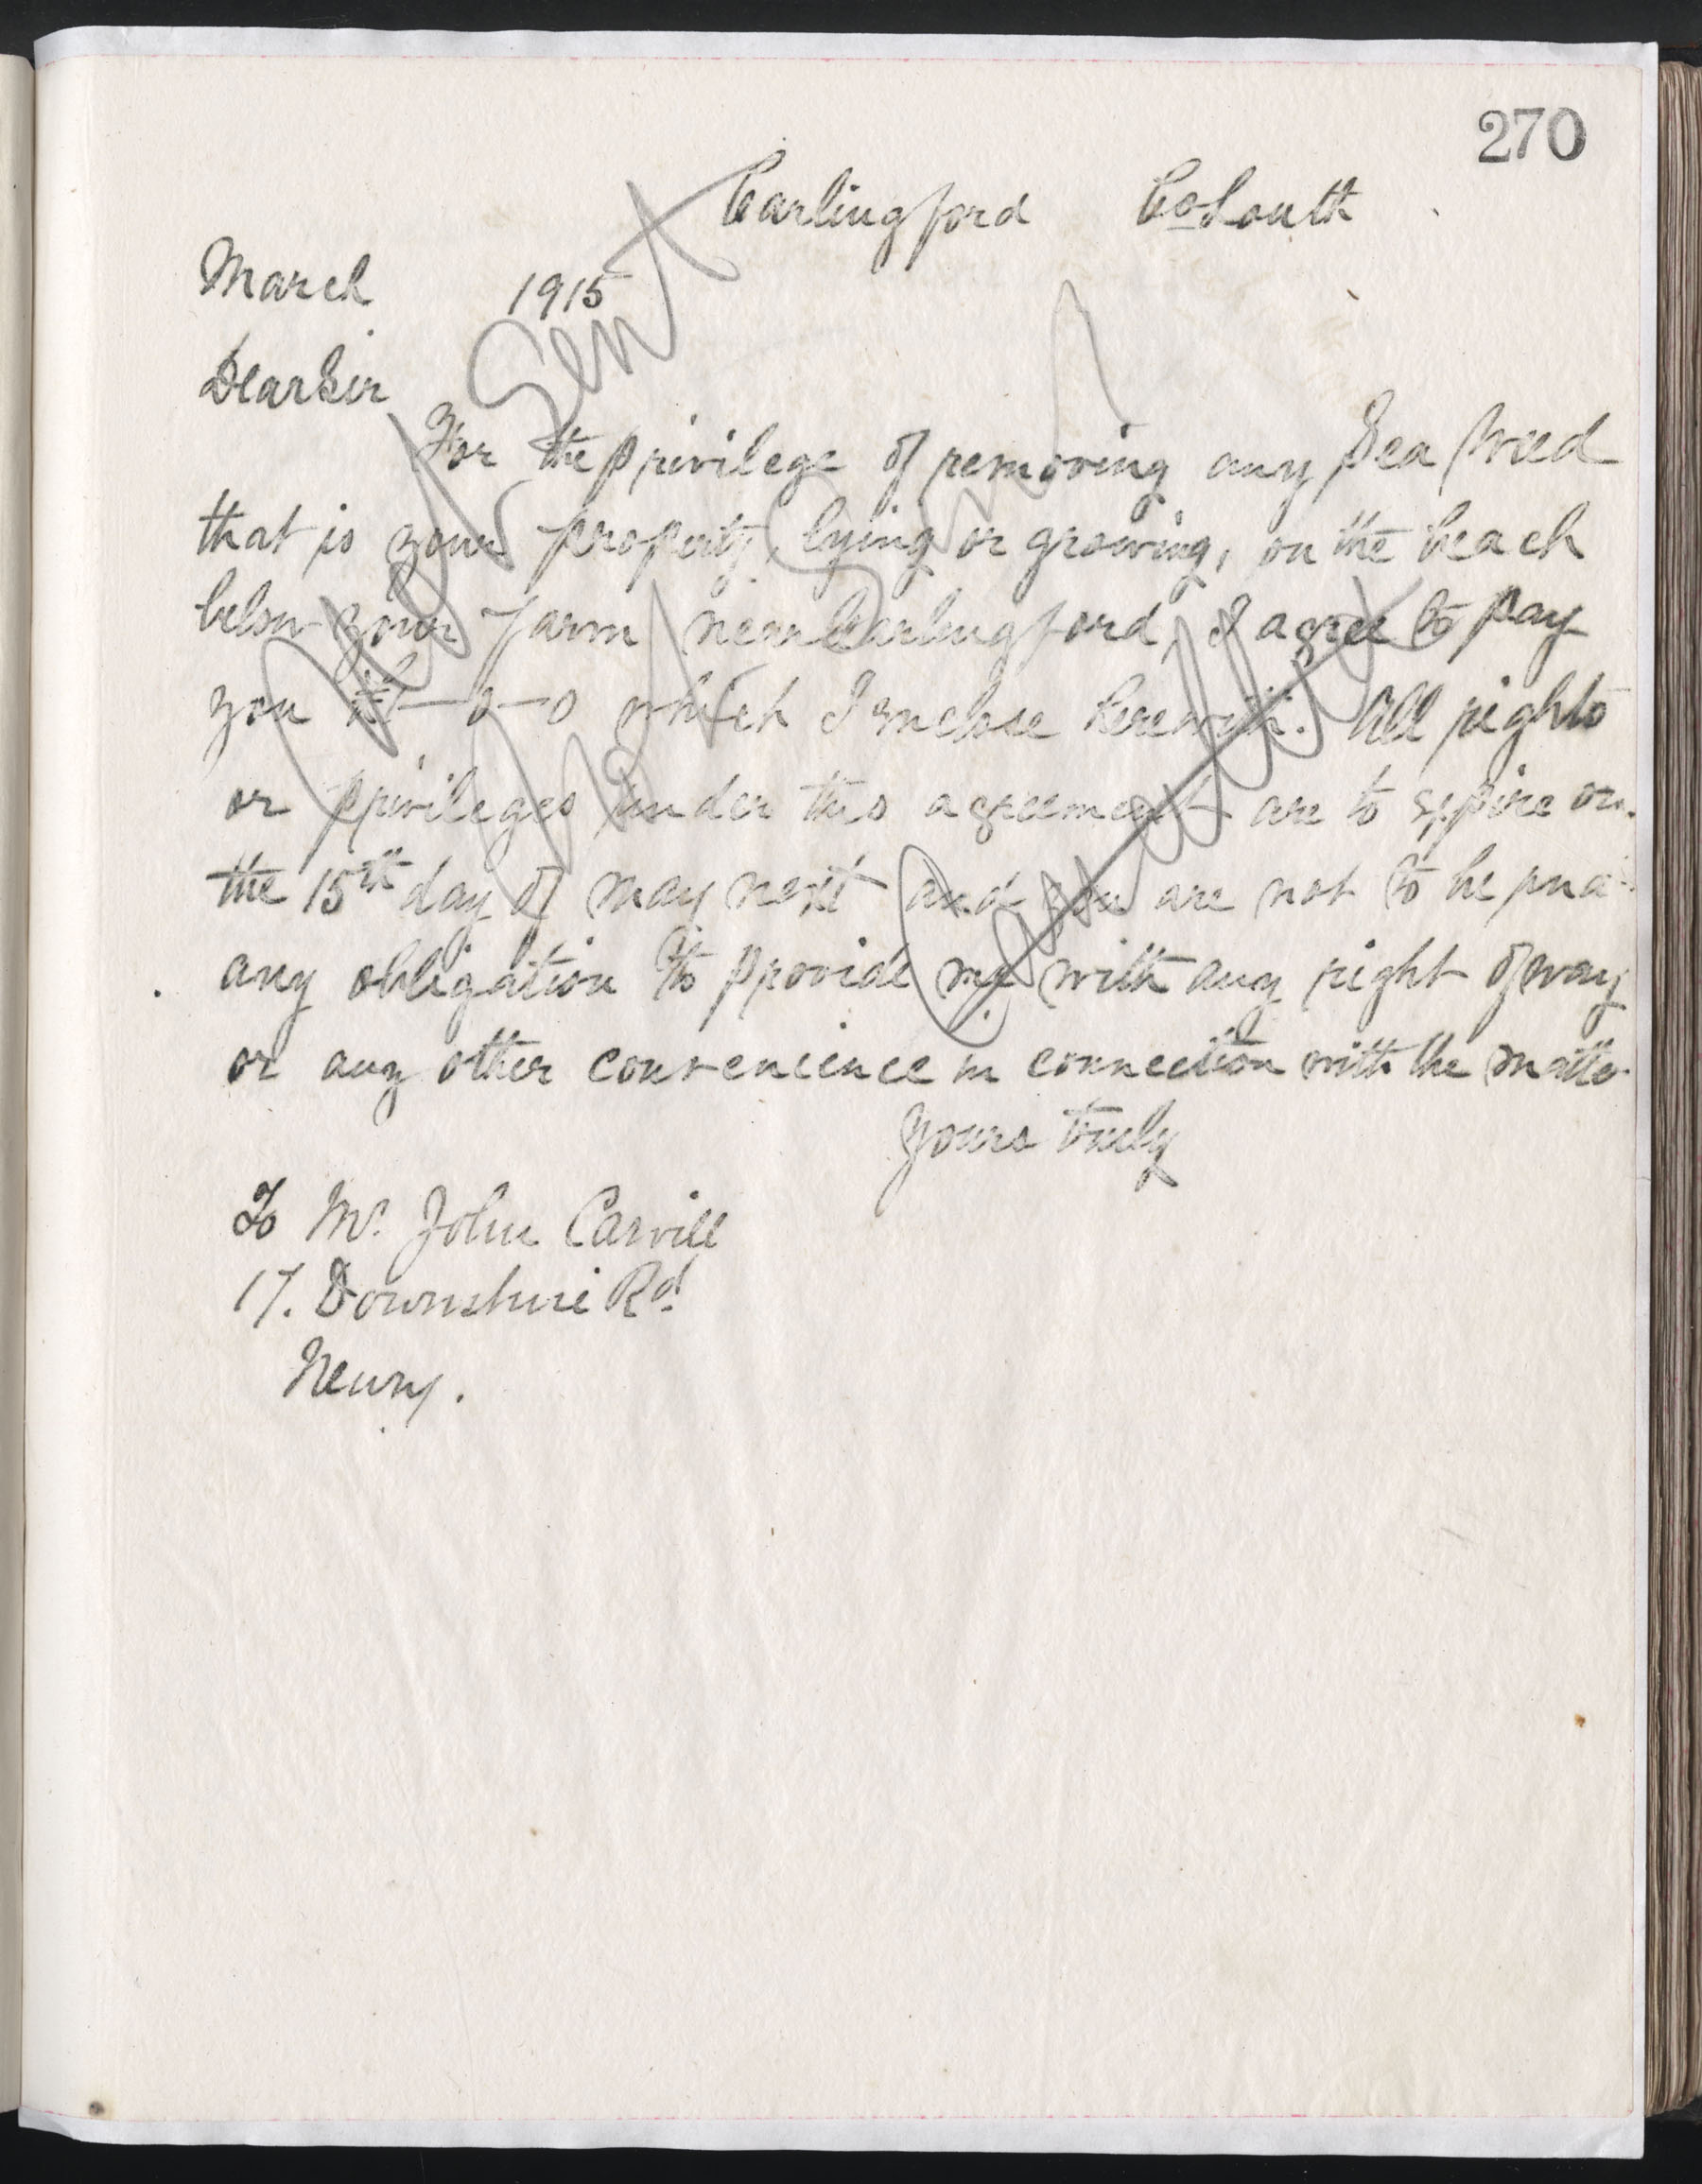 270
Carlingford Co Louth
March 1915
Dear Sir
For the privilege of removing any Sea Weed
that is your property, lying or growing, on the beach
below your farm near Carlingford, I agree to pay
you £1-0-0 which I enclose herewith. All rights
or privileges under this agreement are to expire on
the 15th day of May next and you are not to be und
any obligation to provide me with any right of way
or any other convenience in connection with the matter
Yours truly
To Mr. John Carvill
17. Downshire Rd.
Newry.
Not Sent